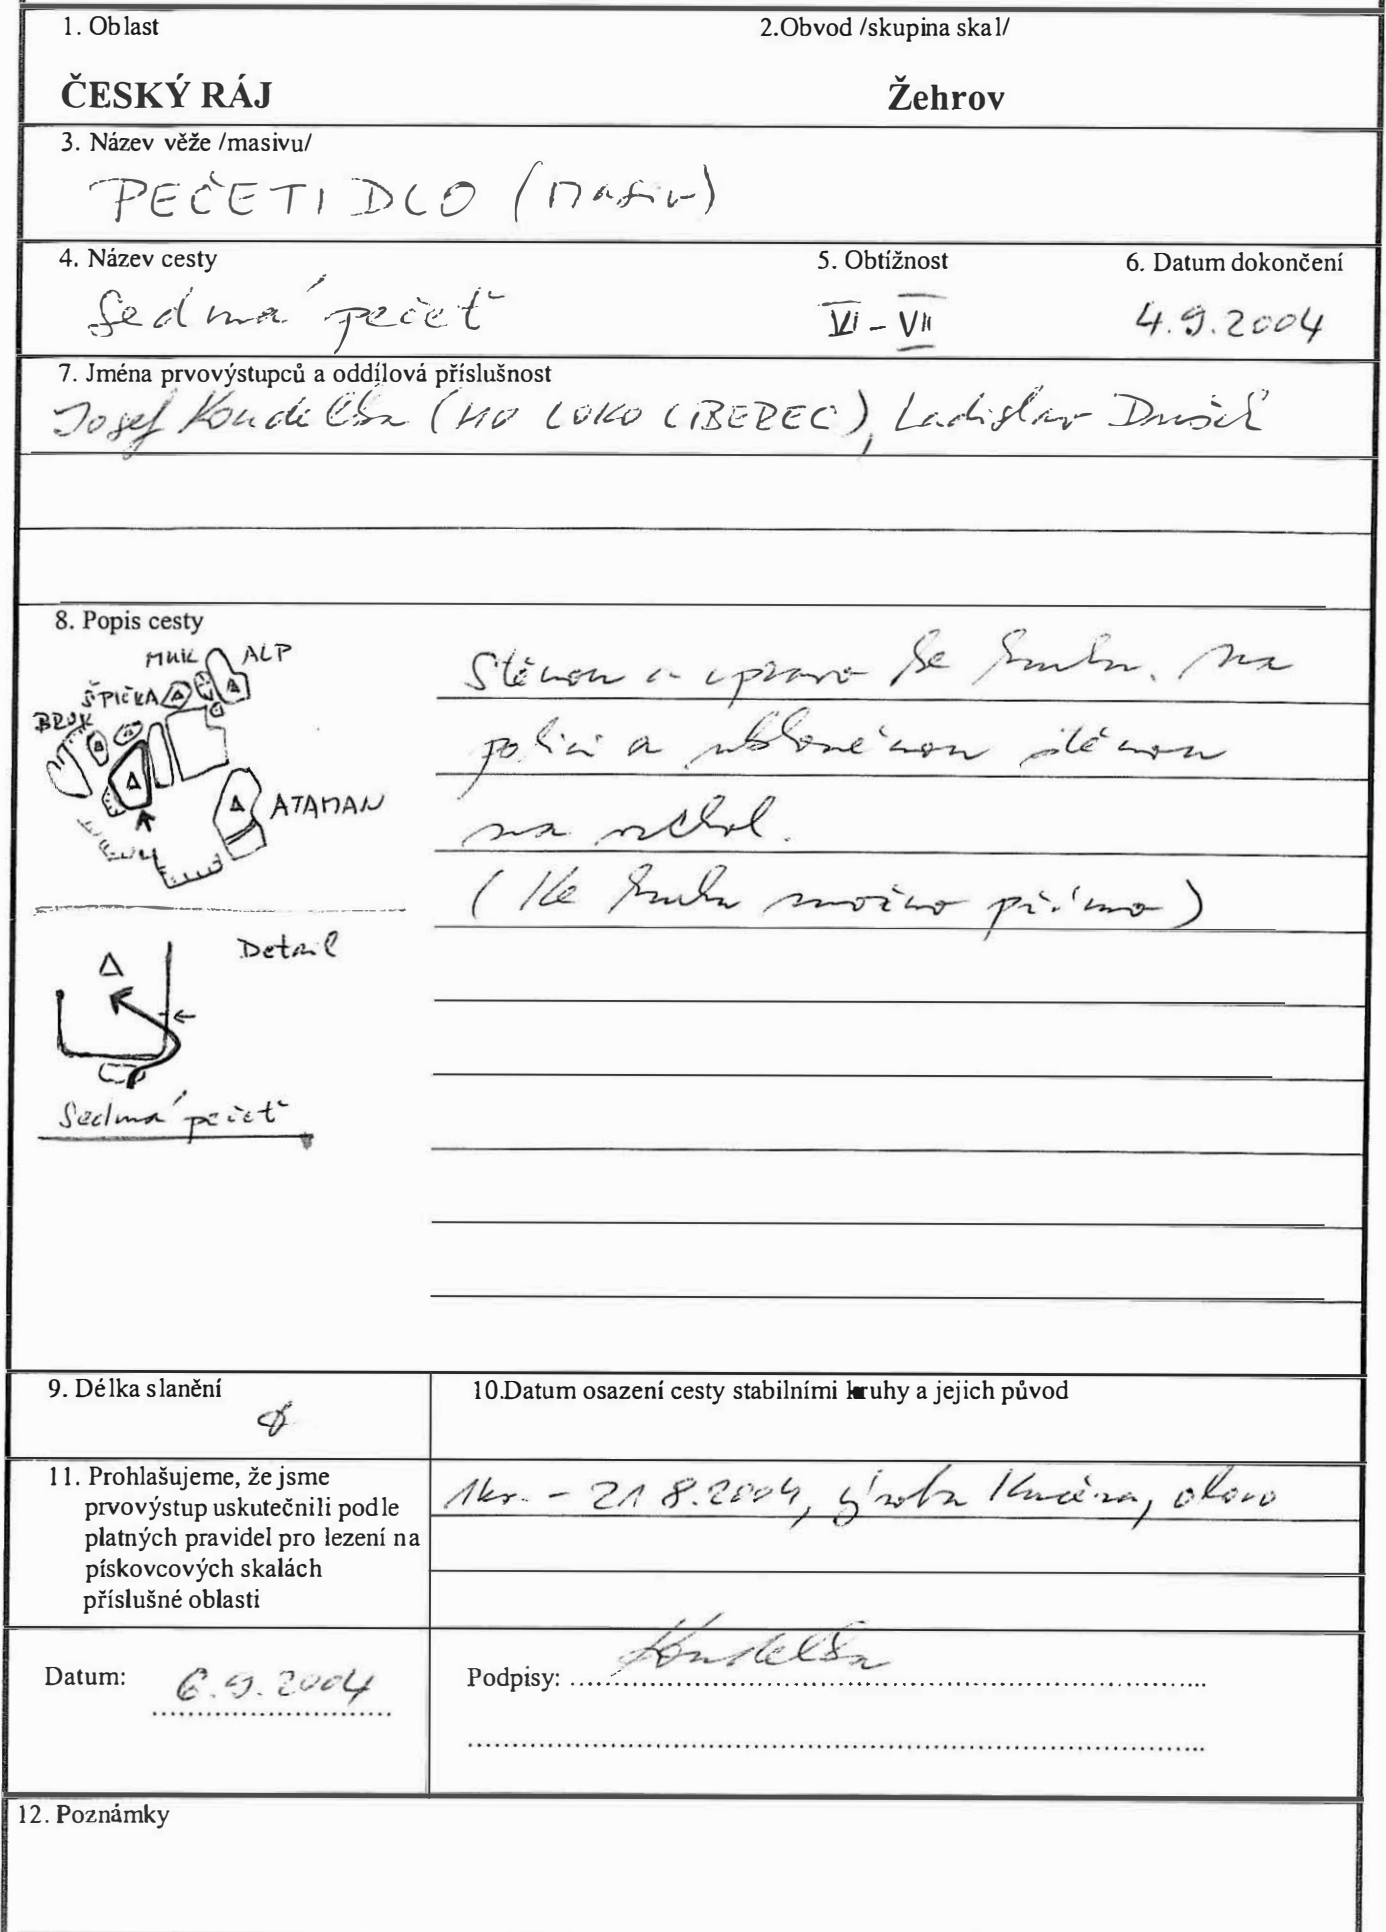 1. Oblast 2.Obvod /skupina skal/
ČESKÝ RÁJ Žehrov
3. Název věže /masivu/
PEČETIDLO (masiv)
4. Název cesty 5. Obtížnost 6. Datum dokončení
Sedmá pečeť VI - VII 4.9.2004
7. Jména prvovýstupců a oddílová příslušnost
Josef Koudelka (HO LOKO LIBEREC), Ladislav
8. Popis cesty
MNK ALP
ŠPIČKA
BRUK
ATAMAN
Stěnou a vpravo ke kruhu. Na
polici a ukloněnou stěnou
na vrchol.
(Ke kruhu možno přímo)
Detail
Sedmá pečeť
9. Délka slanění 10.Datum osazení cesty stabilními kruhy a jejich původ
11. Prohlašujeme, že jsme
prvovýstup uskutečnili podle
platných pravidel pro lezení na
pískovcových skalách
příslušné oblasti
1kr. - 21.8.2004, výroba Kučera, olovo
Datum: 6.9.2004 Podpisy: Koudelka
12. Poznámky